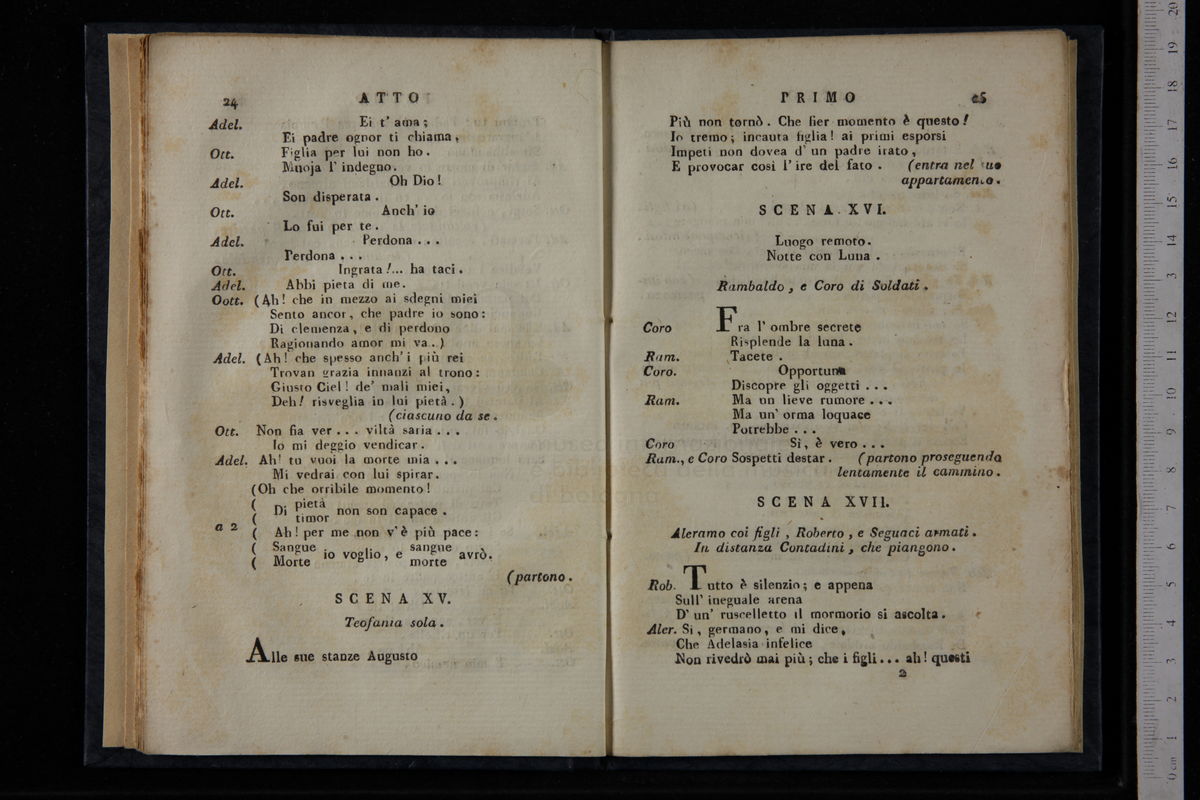 24 ATTO
Adel. Ei t' ama;
Ei padre ognor ti chiama,
Ott. Figlia per lui non ho.
Muoja l' indegno.
Adel. Oh Dio!
Son disperata.
Ott. Anch' io
Lo fui per te.
Adel. Perdona...
Perdona...
Ott. Ingrata!... ha taci.
Adel. Abbi pieta di me.
Oott. (Ah! che in mezzo ai sdegni miei
Sento ancor, che padre io sono:
Di clemenza, e di perdono
Ragionando amor mi va..)
Adel. (Ah! che spesso anch' i più rei
Trovan grazia innanzi al trono:
Giusto Ciel! de' mali miei,
Deh! risveglia in lui pietà.)
(ciascuno da se.
Ott. Non fia ver... viltà saria...
Io mi deggio vendicar.
Adel. Ah! tu vuoi la morte mia...
Mi vedrai con lui spirar.
(Oh che orribile momento!
a 2
( Di pietà non son capace.
( timor
( Ah! per me non v'è più pace:
( Sangue io voglio, e sangue avrò.
( Morte morte
(partono.
SCENA XV.
Teofania sola.
Alle sue stanze Augusto
PRIMO 25
Più non tornò. Che fier momento è questo!
Io tremo; incauta figlia! ai primi esporsi
Impeti non dovea d' un padre irato,
E provocar così l' ire del fato. (entra nel suo
appartamento.
SCENA XVI.
Luogo remoto.
Notte con Luna.
Rambaldo, e Coro di Soldati.
Coro Fra l' ombre secrete
Risplende la luna.
Ram. Tacete.
Coro. Opportuna
Discopre gli oggetti...
Ram. Ma un lieve rumore...
Ma un' orma loquace
Potrebbe...
Coro Si, è vero...
Ram., e Coro Sospetti destar. (partono proseguendo
lentamente il cammino.
SCENA XVII.
Aleramo coi figli, Roberto, e Seguaci armati.
In distanza Contadini, che piangono.
Rob. Tutto è silenzio; e appena
Sull' ineguale arena
D' un' ruscelletto il mormorio si ascolta.
Aler. Si, germano, e mi dice,
Che Adelasia infelice
Non rivedrò mai più; che i figli... ah! questi
2
0 cm 1 2 3 4 5 6 7 8 9 10 11 12 13 14 15 16 17 18 19 20